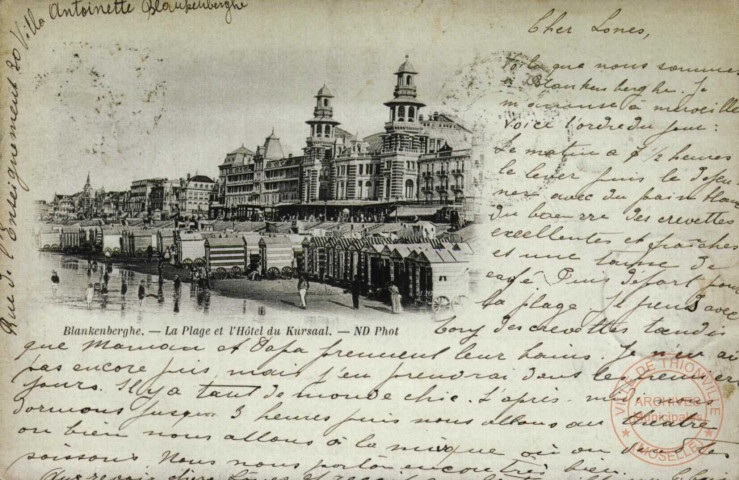 Villa Antoinette Blankenberghe
Rue de l'Enseignement 20
Cher Lones,
que nous sommes
à Blankenberghe. Je
m'amuse à merveille
Voici l'ordre du jour :
Le matin à 7 1/2 heures
le lever puis le déjeu
ner avec du pain blanc
du beurre des crevettes
excellentes et fraîches
et une tasse de
café Puis départ pour
la plage. Je prends avec
Tony des crevettes tandis
que Maman et Papa prennent leur bains. Je n'en ai
pas encore pris, mais j'en prendrai dans les premiers
jours. Il y a tant de monde chic. L'après-midi nous
dormons jusque 3 heures puis nous allons au théâtre
ou bien nous allons à la musique où on
Nous nous portons encore très bien.
Au revoir cher Lones et
Blankenberghe. — La Plage et l'Hôtel du Kursaal. — ND Phot
VILLE DE THIONVILLE
ARCHIVES
Municipales
(MOSELLE)